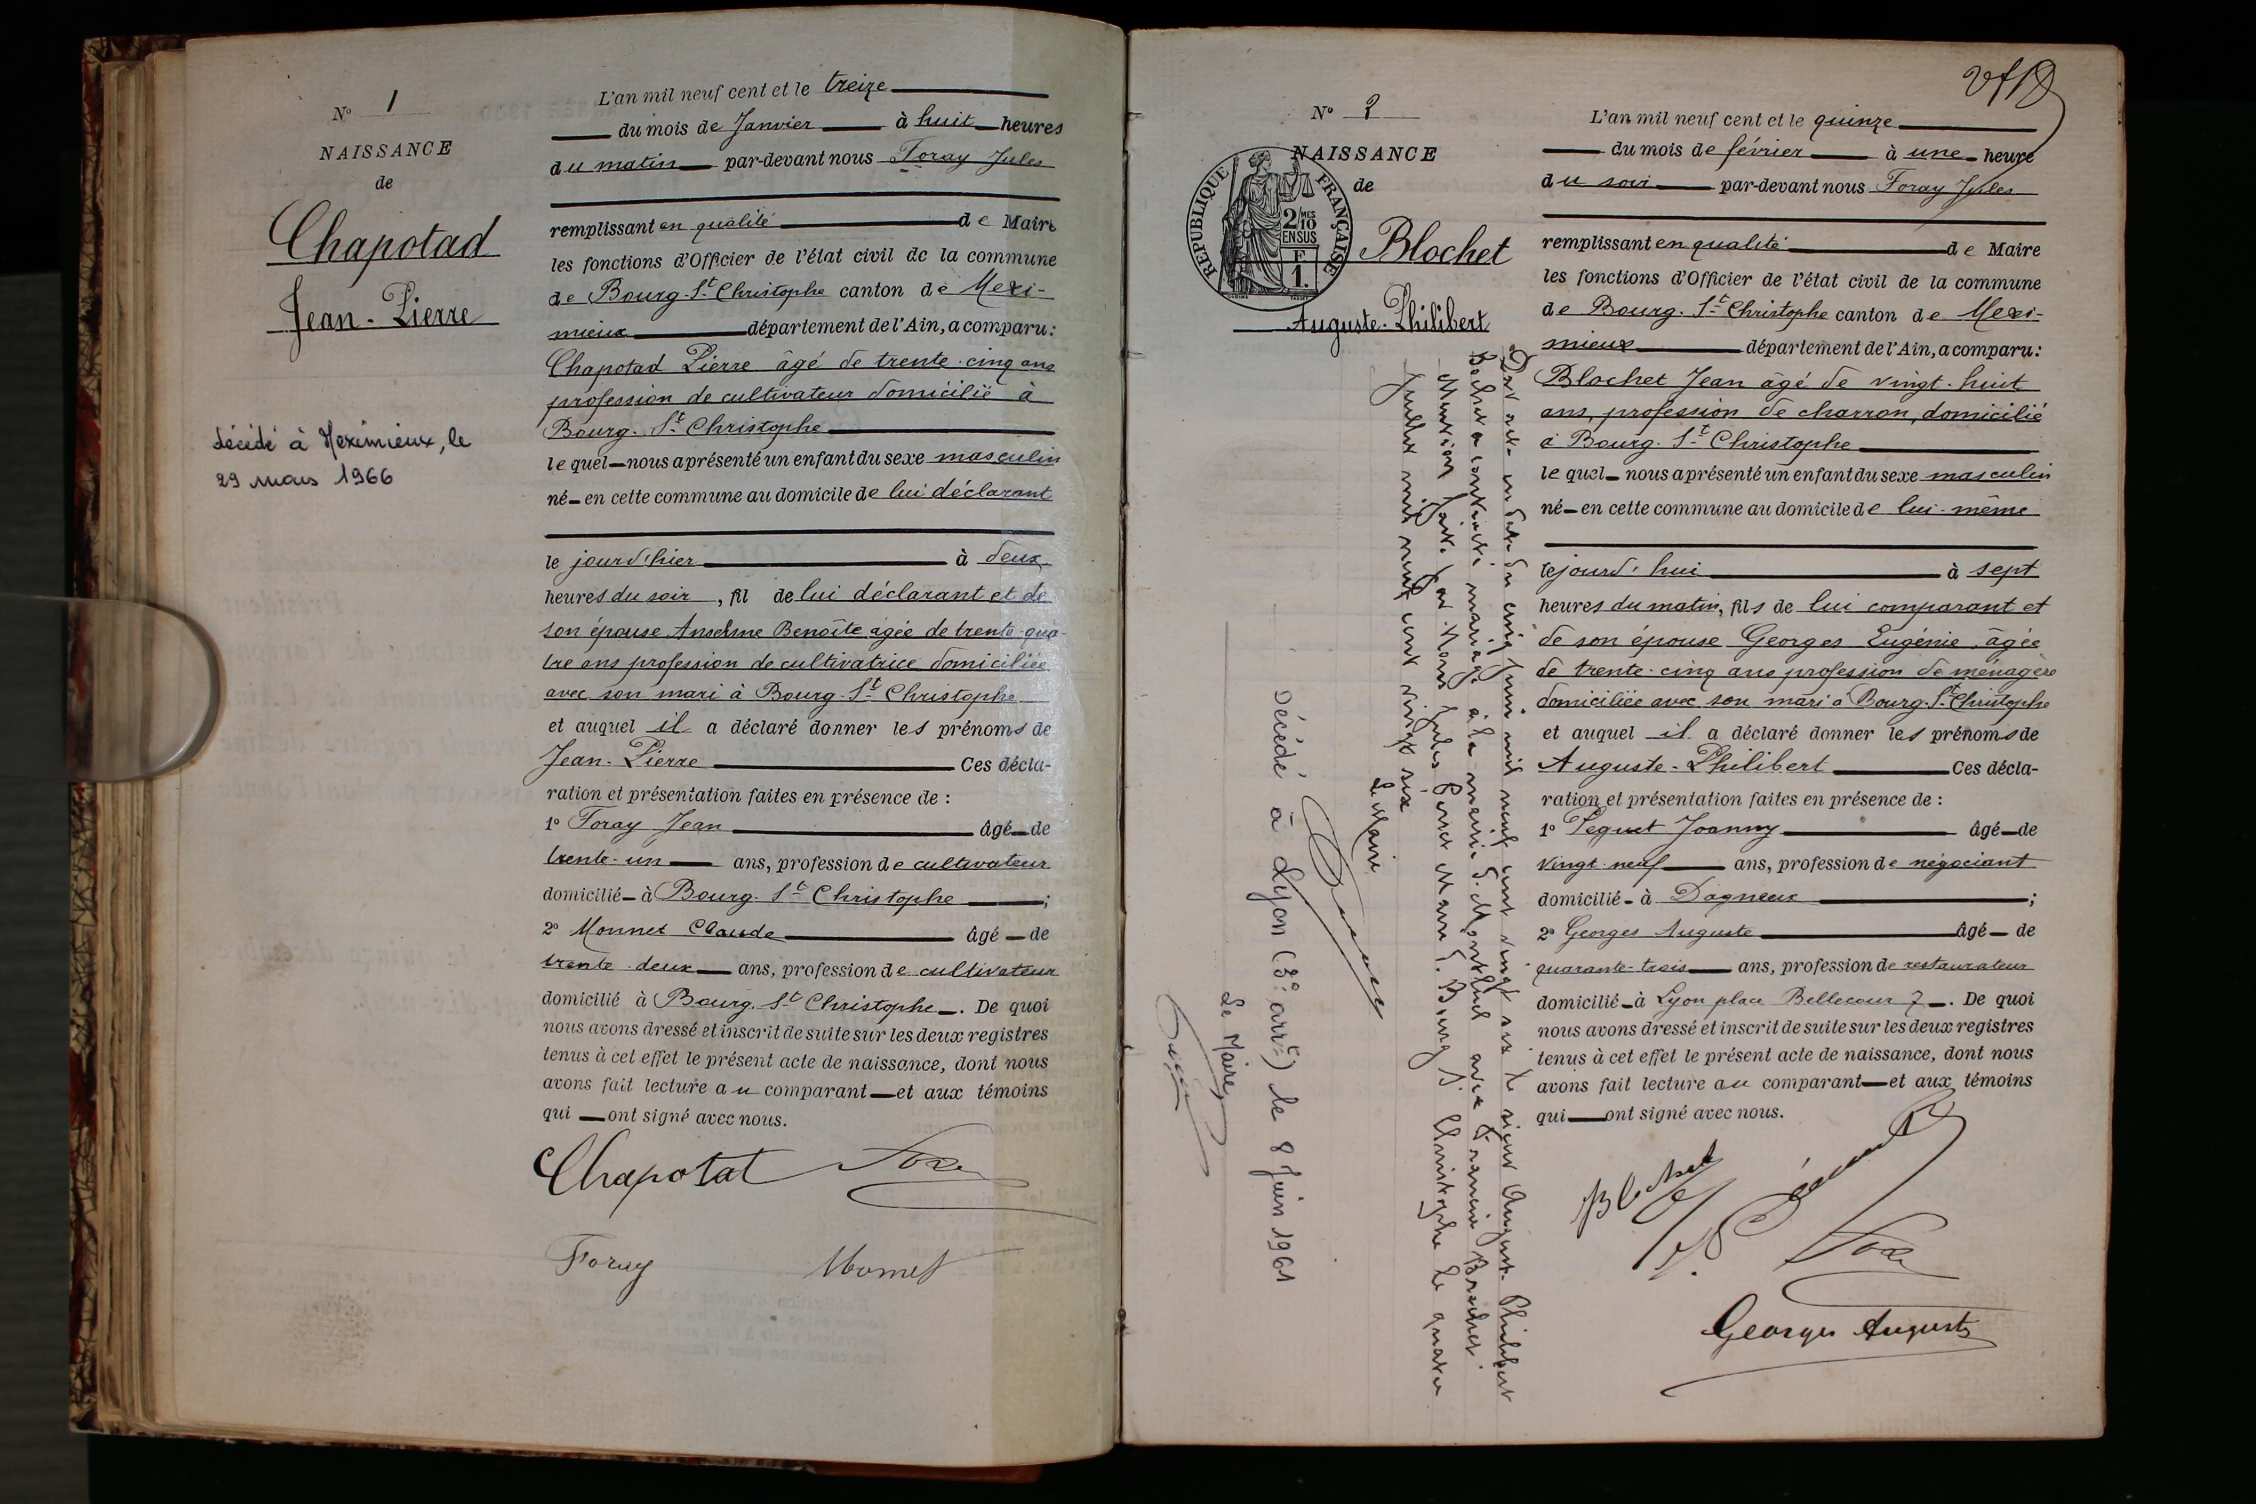 N° 1
NAISSANCE
de
Chapotad
Jean-Pierre
décédé à Meximieux, le
29 mars 1966
L'an mil neuf cent et le treize
du mois de Janvier à huit heures
du matin par-devant nous Foray Jules
remplissant en qualité de Maire
les fonctions d'Officier de l'état civil de la commune
de Bourg-St-Christophe canton de Mexi-
mieux département de l'Ain, a comparu :
Chapotad Pierre âgé de trente-cinq ans
profession de cultivateur domicilié à
Bourg-St-Christophe
lequel nous a présenté un enfant du sexe masculin
né en cette commune au domicile de lui déclarant
le jourd'hier à deux
heures du soir, fil de lui déclarant et de
son épouse Anselme Benoîte âgée de trente-qua-
tre ans profession de cultivatrice domiciliée
avec son mari à Bourg-St-Christophe
et auquel il a déclaré donner les prénoms de
Jean-Pierre Ces décla-
ration et présentation faites en présence de :
1° Foray Jean âgé de
trente-un ans, profession de cultivateur
domicilié à Bourg-St-Christophe ;
2° Monnet Claude âgé de
trente-deux ans, profession de cultivateur
domicilié à Bourg-St-Christophe. De quoi
nous avons dressé et inscrit de suite sur les deux registres
tenus à cet effet le présent acte de naissance, dont nous
avons fait lecture au comparant et aux témoins
qui ont signé avec nous.
Chapotat
Foray
Monnet
N° 2
NAISSANCE
de
REPUBLIQUE FRANÇAISE
2/10 MES
EN SUS
F
1.
Blochet
Auguste-Philibert
Par acte en date du cinq juin mil neuf cent vingt six le sieur Auguste Philibert
Blochet a contracté mariage à la mairie de Montluel avec
Mention faite par Nous Jules Maire de Bourg St Christophe le quatre
Juillet mil neuf cent vingt six
Le Maire
Décédé à Lyon (3e arrt) le 8 Juin 1961
Le Maire,
L'an mil neuf cent et le quinze
du mois de février à une heure
du soir par-devant nous Foray Jules
remplissant en qualité de Maire
les fonctions d'Officier de l'état civil de la commune
de Bourg-St-Christophe canton de Mexi-
mieux département de l'Ain, a comparu :
Blochet Jean âgé de vingt-huit
ans, profession de charron, domicilié
à Bourg-St-Christophe
lequel nous a présenté un enfant du sexe masculin
né en cette commune au domicile de lui-même
le jourd'hui à sept
heures du matin, fils de lui comparant et
de son épouse Georges Eugénie, âgée
de trente-cinq ans profession de ménagère
domiciliée avec son mari à Bourg-St-Christophe
et auquel il a déclaré donner les prénoms de
Auguste-Philibert Ces décla-
ration et présentation faites en présence de :
1° Peguet Joanny âgé de
vingt-neuf ans, profession de négociant
domicilié à Dagneux ;
2° Georges Auguste âgé de
quarante-trois ans, profession de restaurateur
domicilié à Lyon place Bellecour 7. De quoi
nous avons dressé et inscrit de suite sur les deux registres
tenus à cet effet le présent acte de naissance, dont nous
avons fait lecture au comparant et aux témoins
qui ont signé avec nous.
Blochet
Georges Auguste